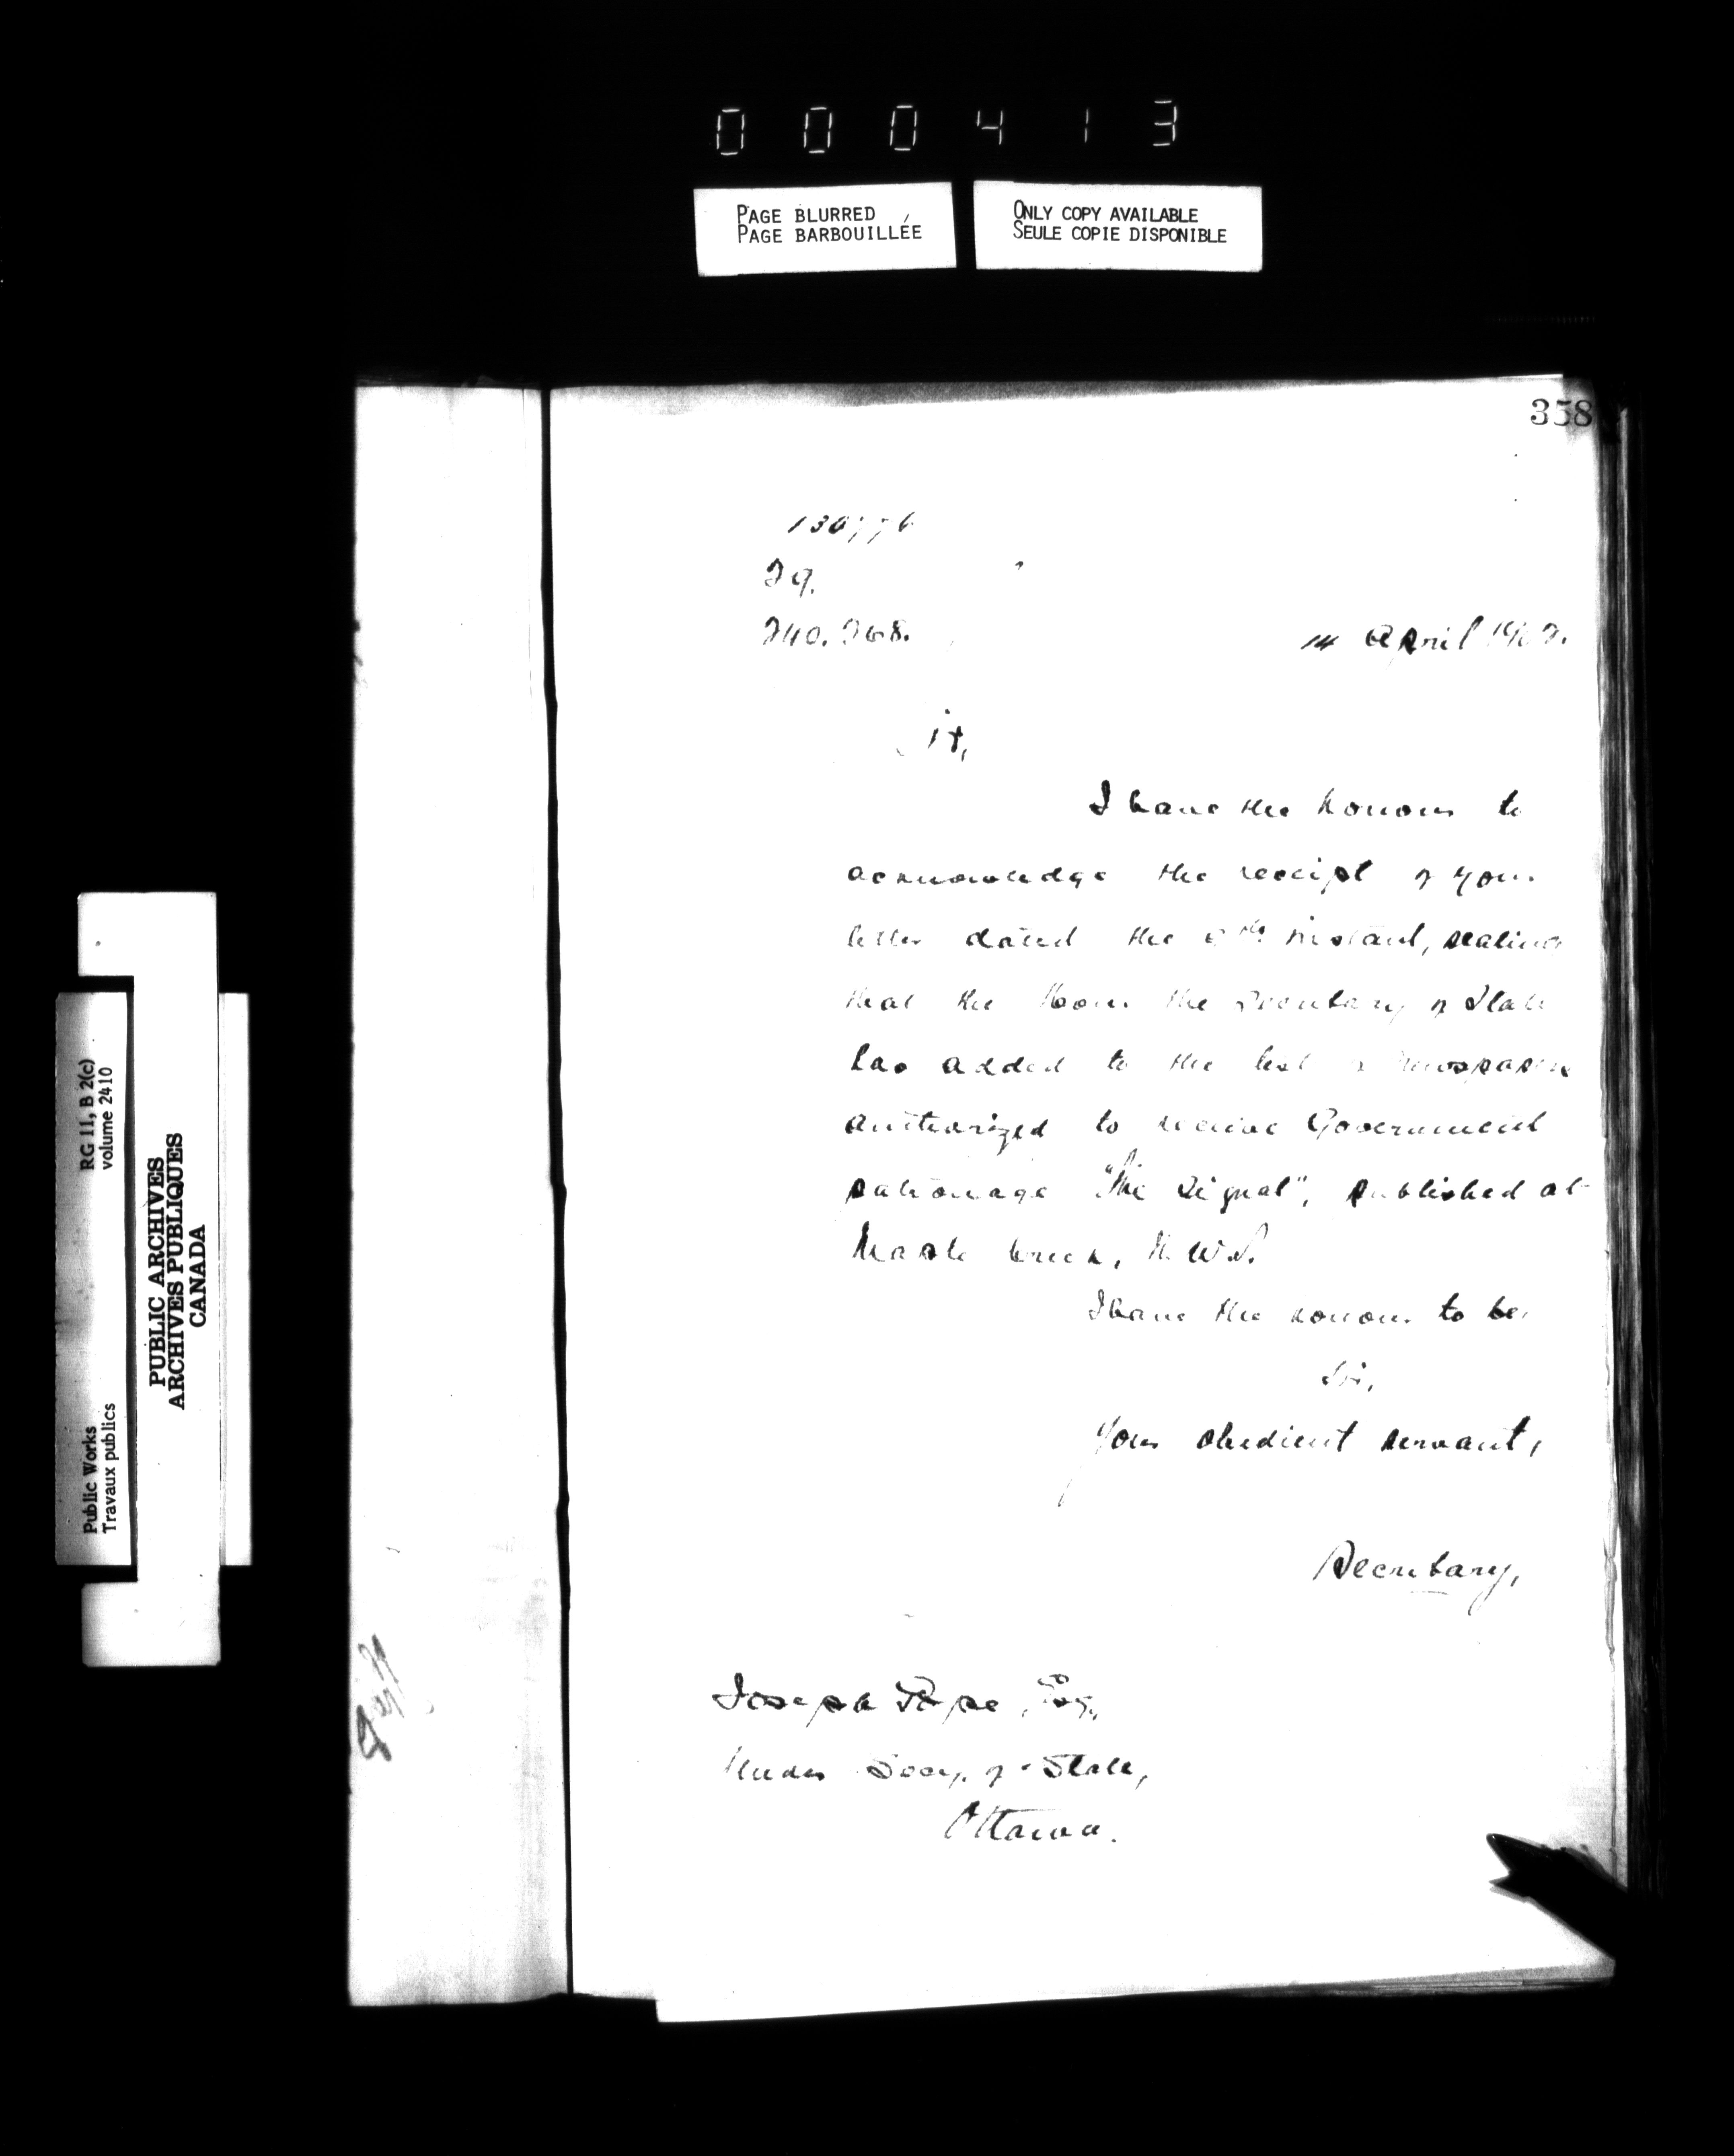 000413
PAGE BLURRED
PAGE BARBOUILLÉE
ONLY COPY AVAILABLE
SEULE COPIE DISPONIBLE
358
29.
240.268.
14 April
Sir,
I have the honour to
acknowledge the receipt of your
letter dated the instant, stating
that the Hon. the Secretary of State
has added to the list of newspapers
authorized to receive Government
patronage "The Signal", published at
Maple Creek, N.W.T.
I have the honour to be,
Sir,
Your obedient servant,
Secretary,
Joseph Pope, Esq,
Under Secy. of State,
Ottawa.
RG 11, B 2(c)
volume 2410
PUBLIC ARCHIVES
ARCHIVES PUBLIQUES
CANADA
Public Works
Travaux publics